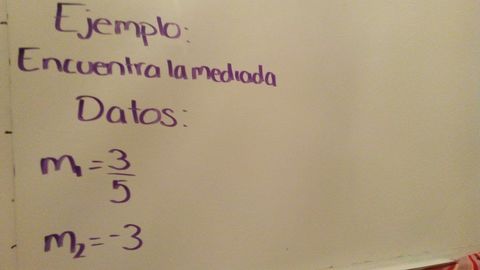 Ejemplo:
Encuentra la mediada
Datos:
m₁ = 3/5
m₂ = -3